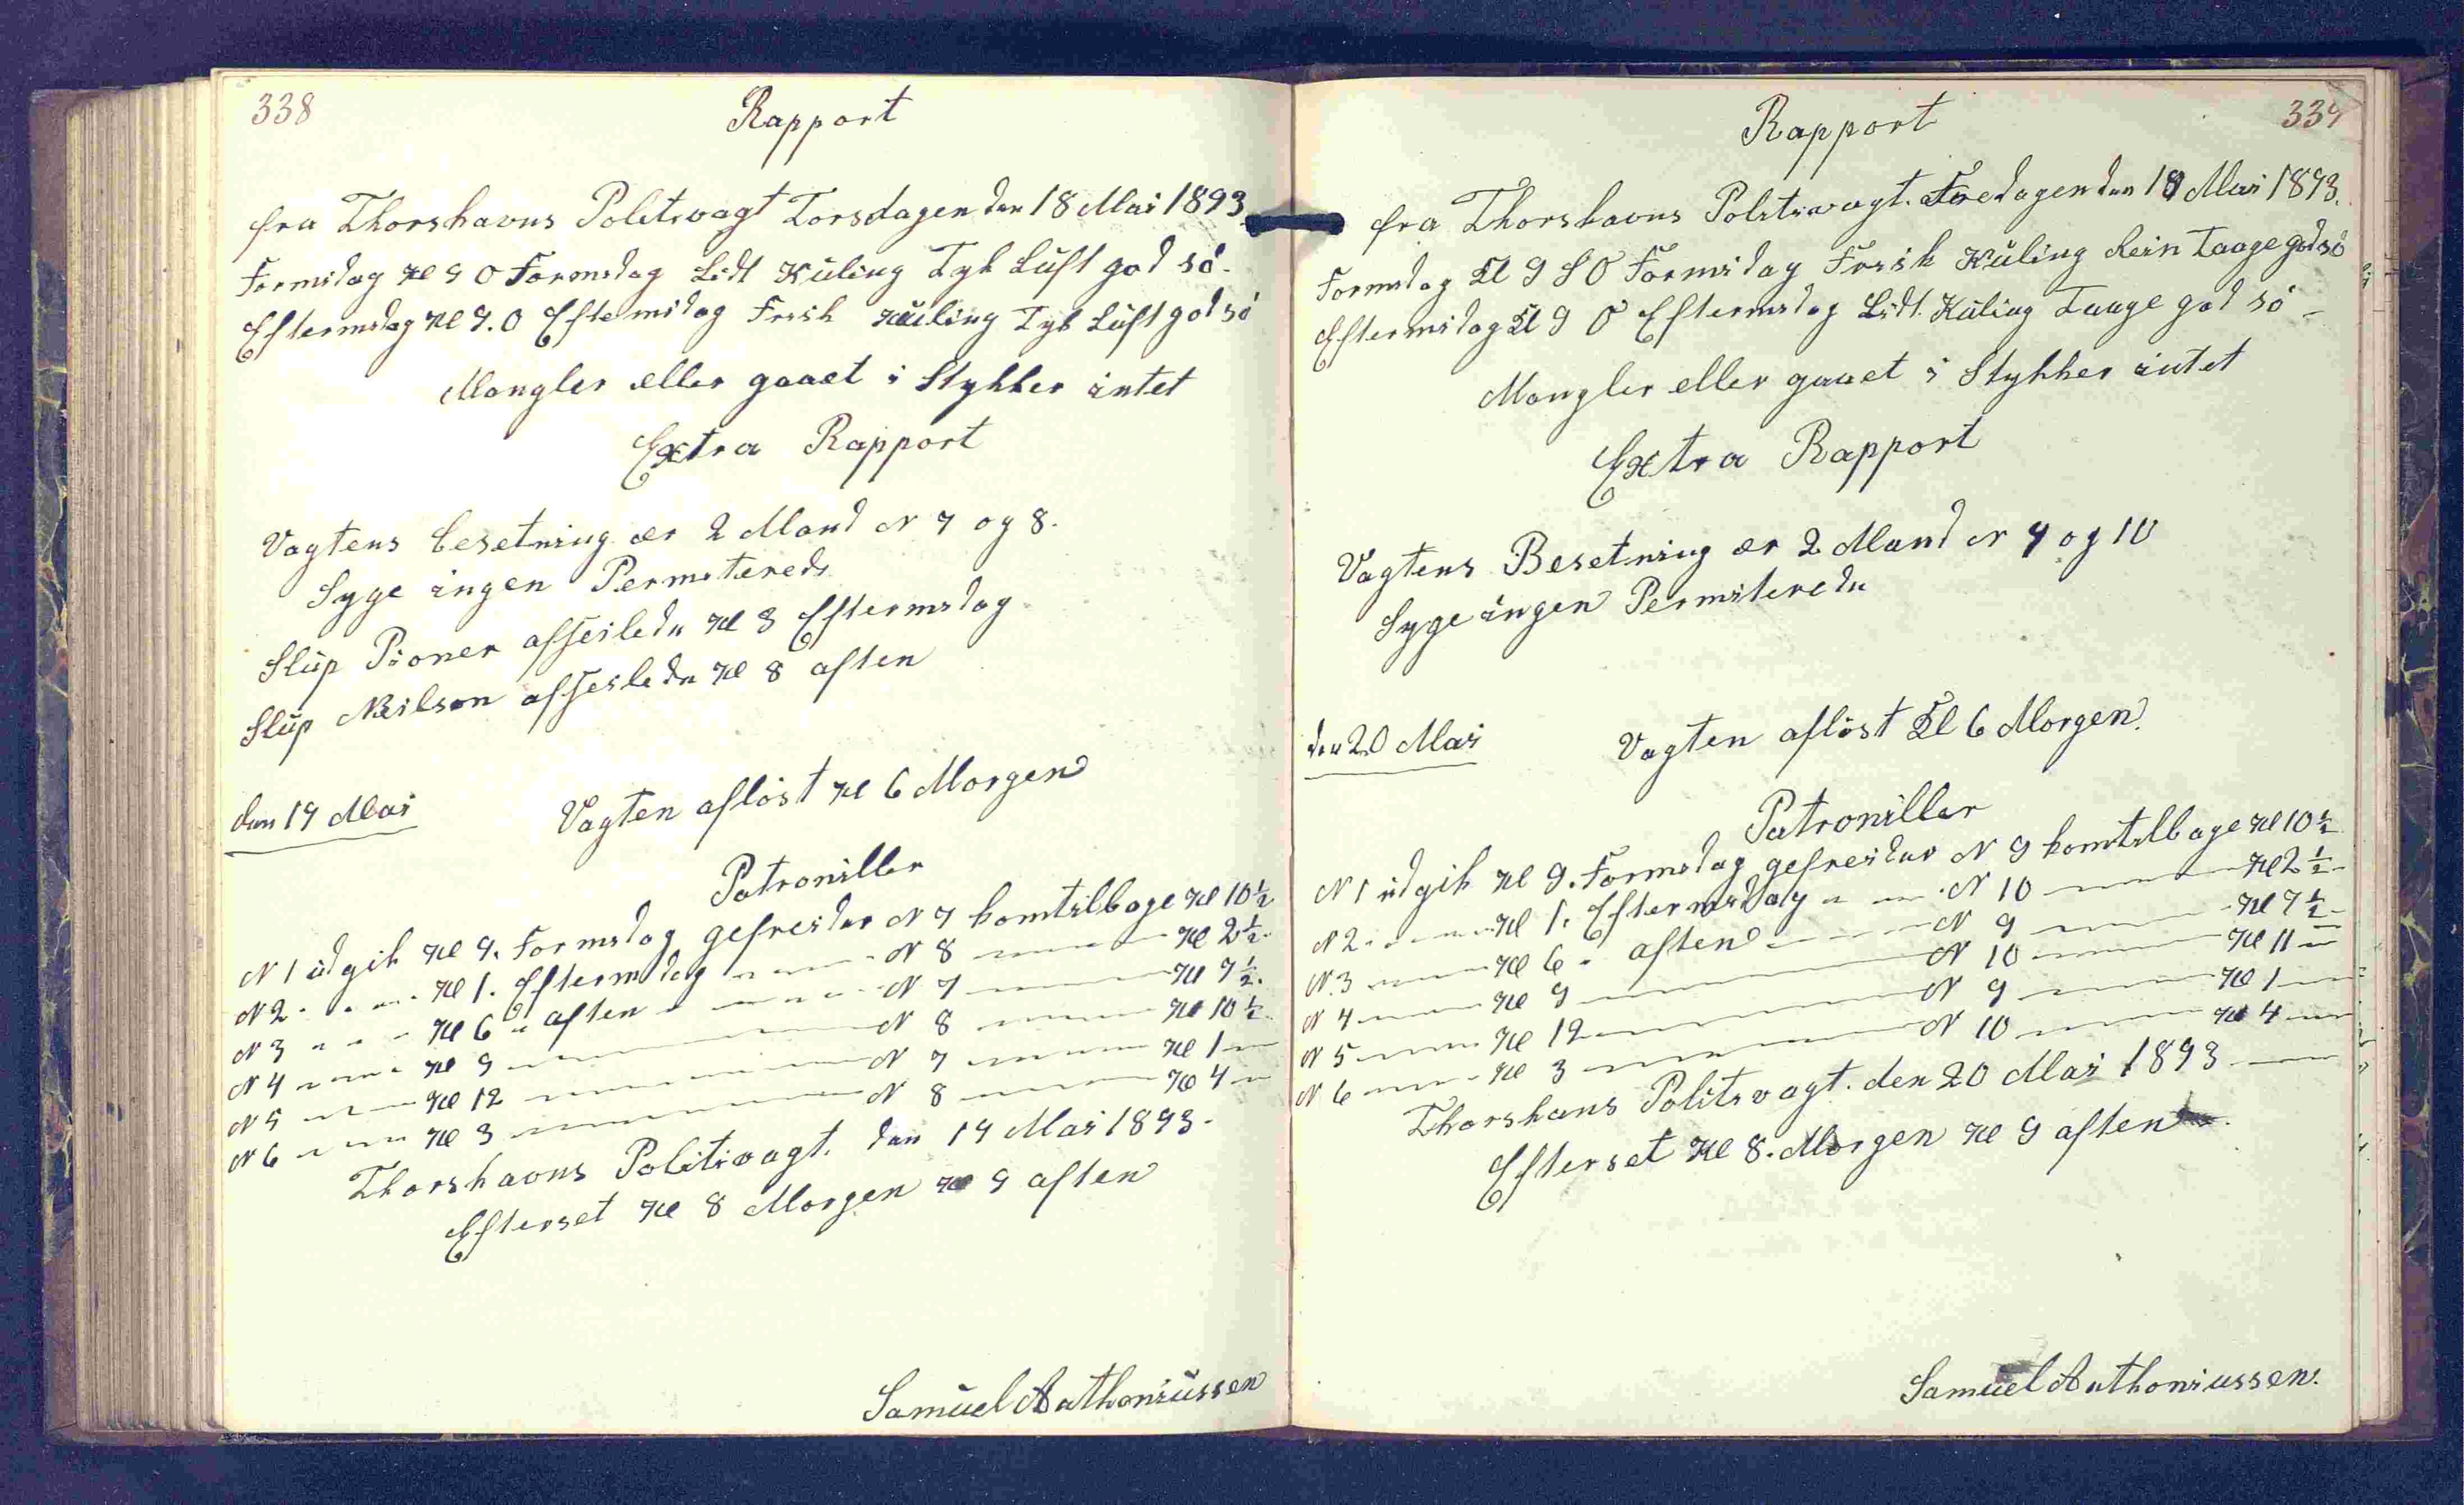 338
Rapport
fra Thorshavns Politivagt Torsdagen den 18 Mai 1893
Formidag Kl 9 O Formidag Lidt Kuling Tyk Luft god sö.
Eftermidag Kl 9. O Eftermidag Frisk Kuling Tyk Luft god sö
Mangler eller gaaet i Stykker intet
Extra Rapport
Vagtens besetning er 2 Mand N 7 og 8.
Syge ingen Permiterede
Slup Pioner afseilede Kl 8 Eftermidag
Slup Neilson afseilede Kl 8 aften
den 19 Mai Vagten aflöst Kl 6 Morgen
Patroniller
N 1 udgik Kl 9. Formidag gefreider N 7 komtilbage Kl 10 ½
N 2 Kl 1. Eftermidag N 8 Kl 2 ½
N 3 Kl 6 aften N 7 Kl 7 ½.
N 4 Kl 9 N 8 Kl 10 ½
N 5 Kl 12 N 7 Kl 1
N 6 Kl 3 N 8 Kl 4
Thorshavns Politivagt. den 19 Mai 1893.
Efterset Kl 8 Morgen Kl 9 aften
Samuel Anthoniussen
339
Rapport
fra Thorshavns Politivagt. Fredagen den 19 Mai 1893.
Formidag Kl 9 S O Formidag Frisk Kuling Rein Taage god sö
Eftermidag Kl 9 O Eftermidag Lidt Kuling Taage god sö
Mangler eller gaaet i Stykker intet
Extra Rapport
Vagtens Besetning er 2 Mand N 9 og 10
Syge ingen Permiterede
den 20 Mai Vagten aflöst Kl 6 Morgen.
Patroniller
N 1 udgik Kl 9. Formidag gefreider N 9 komtilbage Kl 10 ½
N 2 Kl 1. Eftermidag N 10 Kl 2 ½
N. 3 Kl 6 aften N 9 Kl 7 ½
N 4 Kl 9 N 10 Kl 11
N 5 Kl 12 N 9 Kl 1
N 6 Kl 3 N 10 Kl 4
Thorshans Politivagt. den 20 Mai 1893
Efterset Kl 8. Morgen Kl 9 aften
Samuel Anthoniussen.